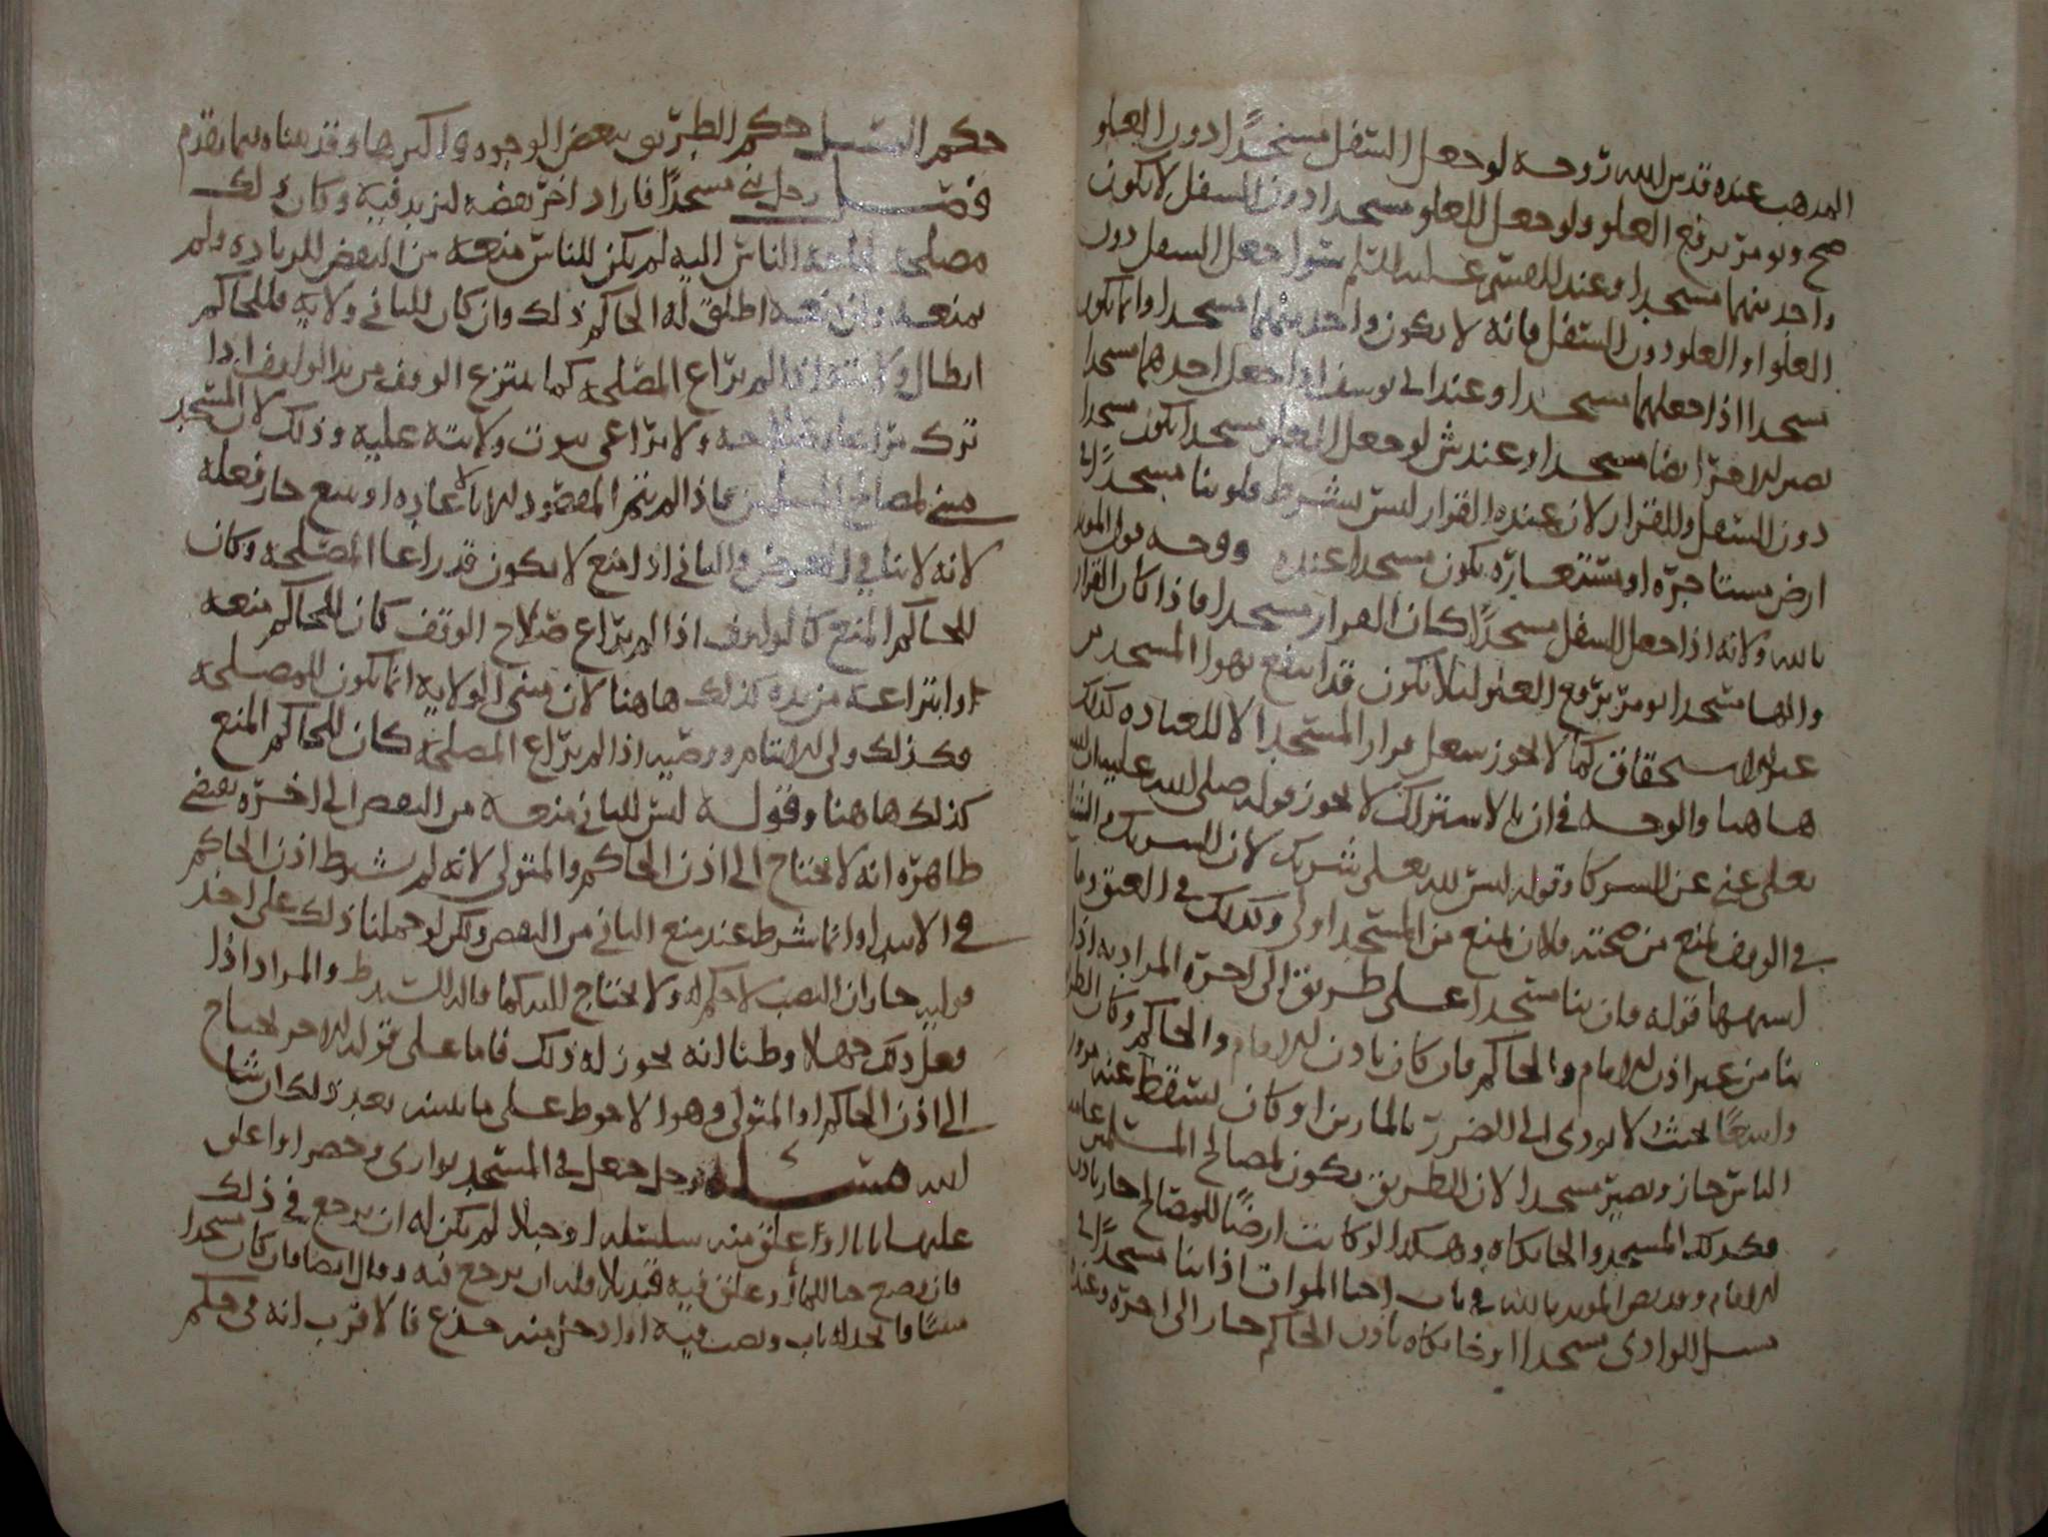 المذهب عنده قدس الله روحه لو جعل السفل مسجدًا دون العلو
صح ويومر برفع العلو ولو جعل العلو مسجدا دون السفل لا يكون
واحد منهما مسجدا وعند القسم عليه السلم سوا جعل السفل دون
العلو او العلو دون السفل فانه لا يكون واحد منهما مسجدا وانما يكون
مسجدا اذا جعلهما مسجدا وعند ابي يوسف اذا جعل احدهما مسجدا
يصير الاخر ايضا مسجدا وعند ش لو جعل العلو مسجدا يكون مسجدا
دون السفل والقرار لان عنده القرار ليس بشرط فلو بنا مسجدًا في
ارض مستاجره او مستعاره يكون مسجدا عنده ووجه قول المويد
بالله ولانه اذا جعل السفل مسجدًا كان القرار مسجدا فاذا كان القرار
والها مسجدا يومر برفع العلو ليلا يكون قد انتفع بهوا المسجد من
غير استحقاق كما لا يجوز شغل قرار المسجد الا للعباده كذلك
هاهنا والوجه في ان بالاشتراك لا يجوز قوله صلى الله عليه ان الله
تعلى غني عن الشركا وقوله ليس لله تعلى شريك لان الشريك في
في الوقف لمنع من صحته فلان لمنع من المسجد اولى وكذلك في العتق وما
اشبهها قوله فان بنا مسجدا على طريق الى اخره المراد به اذا
بنا من غير اذن الامام والحاكم فان كان باذن الامام والحاكم وكان
واسعًا بحيث لا يودي الى الضرر بالمارين او كان سقط عنه مرور
الناس جاز ويصير مسجدا لان الطريق يكون لمصالح المسلمين
فكذلك المسجد والخانكاه وهكذا لو كانت ارضًا للمصالح جاز باذن
الامام وقد نص المويد بالله في باب احيا الموات اذا بنا مسجدًا في
سبل الوادي مسجدا او خانكاه باذن الحاكم جاز الى اخره وعنده
حكم السبل حكم الطريق ببعض الوجوه واكثرها وقد هنا وبما تقدم
فصل رجل بنى مسجدًا فاراد اخر نقضه ليزيد فيه وكان ذلك
مصلحة لحاجه الناس اليه لم يكن للناس منعه من النقض للزياده ولم
يمنعه وان منعه اطلق له الحاكم ذلك وان كان للباني ولايه فللحاكم
ابطال ولايته اذا لم يراع المصلحه كما ينتزع الوقف من يد الواقف اذا
ترك مراعاه مصالحه ولا يراعى ثبوت ولايته عليه وذلك لان المسجد
مبني لمصالح المسلمين فاذا لم يتم المقصود الا بالاعاده اوسع جاز فعله
لانه لا ينافي الغرض والباني اذا منع لا يكون قد راعا المصلحه وكان
للحاكم المنع كالواقف اذا لم يراع صلاح الوقف كان للحاكم منعه
او انتزاعه من يده كذلك هاهنا لان مبنى الولايه انما يكون للمصلحه
وكذلك ولي الايتام ووصيه اذا لم يراع المصلحة كان للحاكم المنع
كذلك هاهنا وقوله ليس للباني منعه من النقض الى اخره يقضي
ظاهره انه لا يحتاج الى اذن الحاكم والمتولي لانه لم يشرط اذن الحاكم
في الابتدا وانما شرط عند منع الباني من النقض ولكن لو حملنا ذلك على احد
قوليه جاز ان النصب لا حكم له ولا يحتاج اليه كما قاله والمراد اذا
فعل ذلك جهلا وظنا انه يجوز له ذلك فاما على قوله الاخر يحتاج
الى اذن الحاكم او المتولي وهو الاحوط على ما نبينه بعد ذلك ان شا
الله مسله رجل جعل في المسجد بواري وحصر او اغلق
عليه بابا او علق منه سلسله او حبلا لم يكن له ان يرجع في ذلك
فان وضع حبا للما او علق فيه قنديلا فله ان يرجع فيه وقال ايضا فان كان مسجدا
مبنيا فاتخذ له باب ونصب فيه او ادخل منه جذع فالاقرب انه في حكم